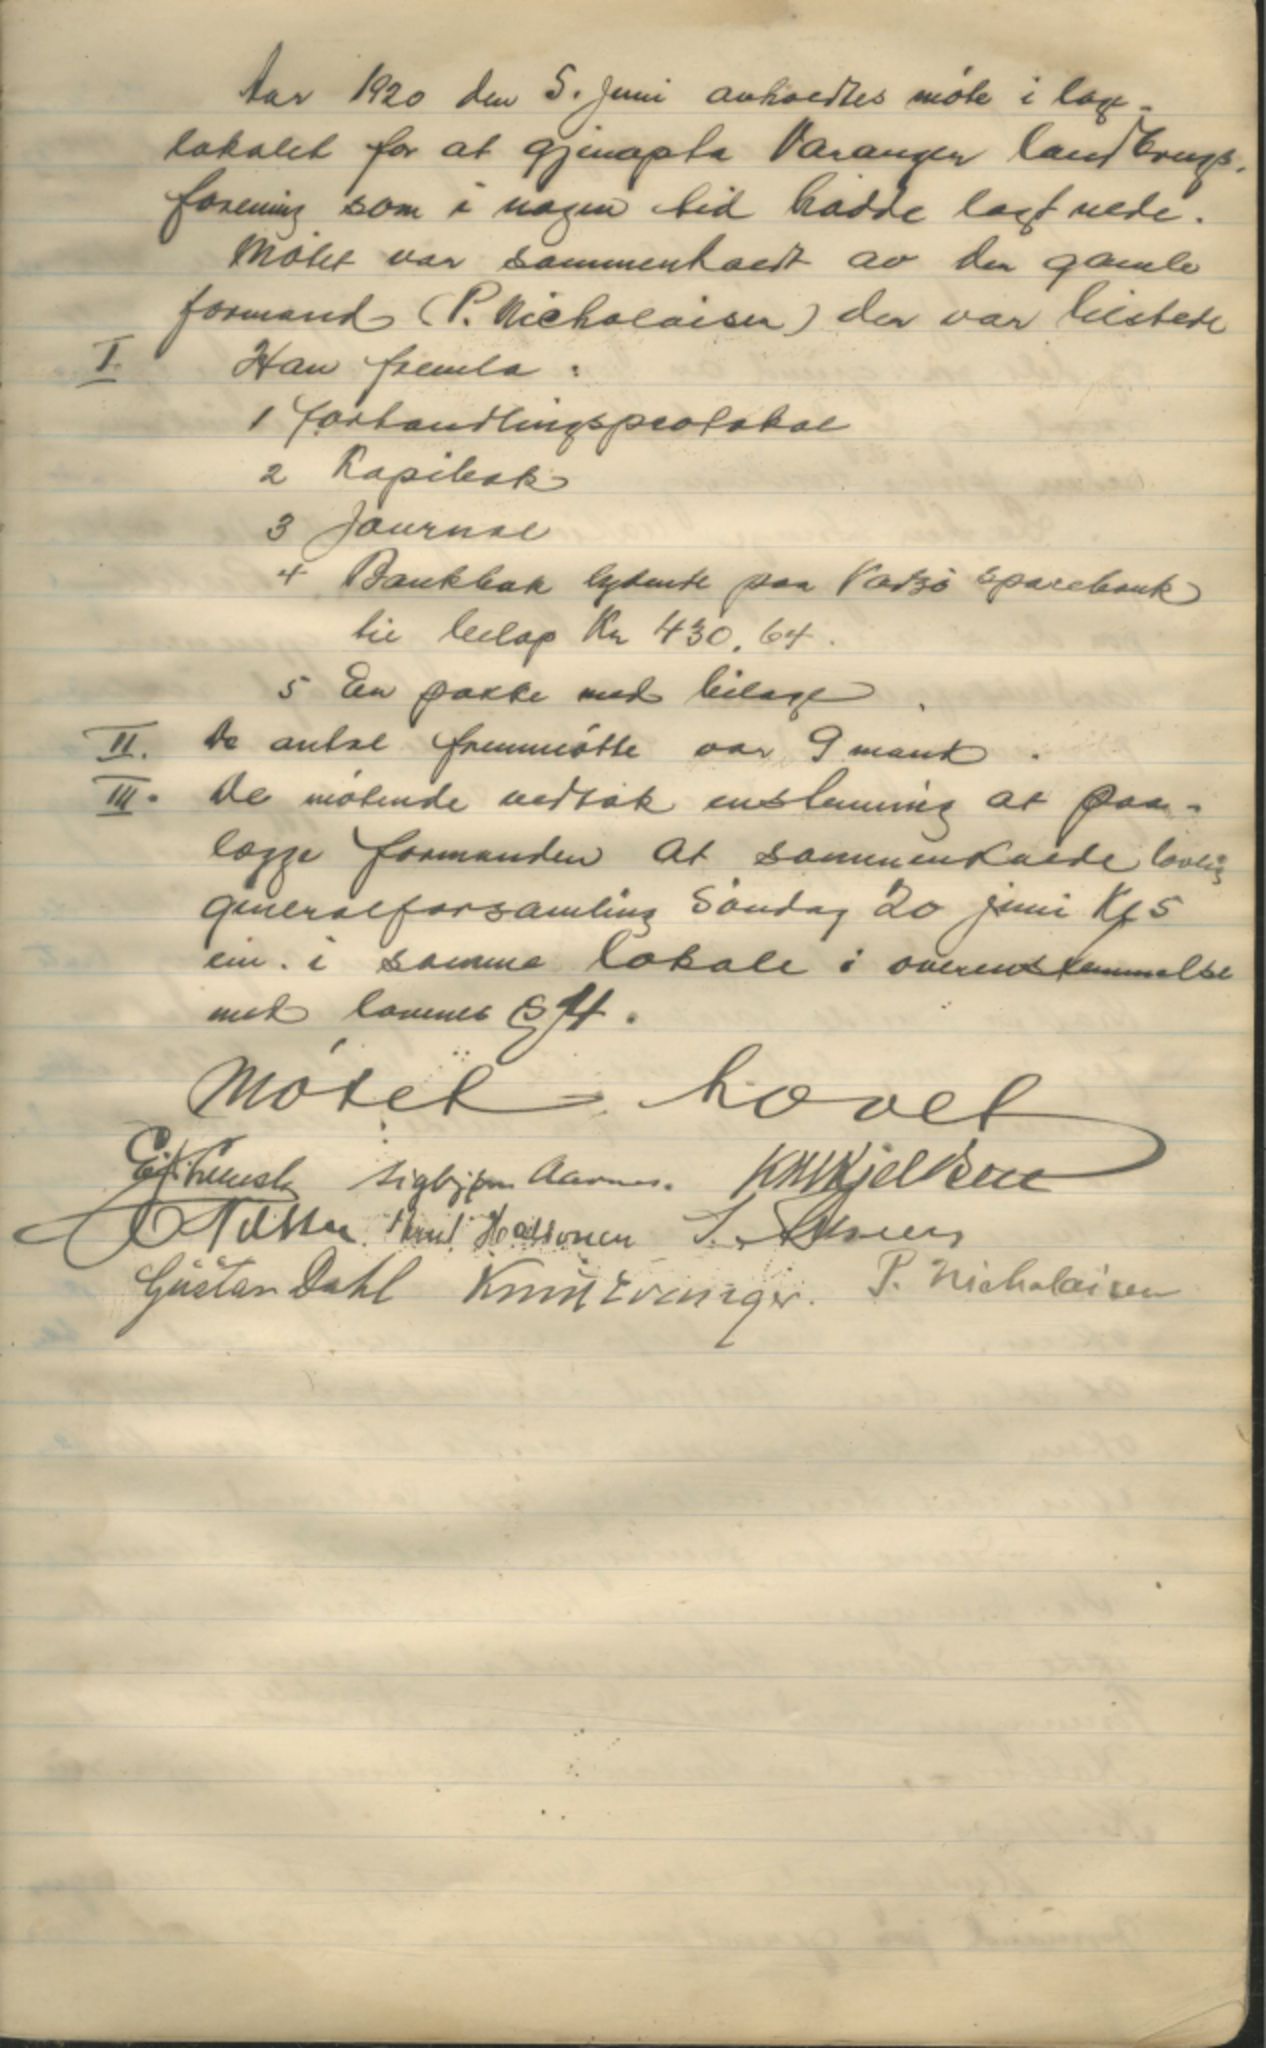 Aar 1920 den 5. juni avholdtes möte i lage-
lokalet for at gjenopta Varanger landbrugs-
forening som i nogen tid hadde lagt nede.
Mötet var sammenkaldt av den gamle
formand (P. Nicholaisen) der var tilstede
I. Han fremla:
1 forhandlingsprotokol
2 Kopibok
3 Journal
4 Bankbok lydende paa Vadsö sparebank
til belöp Kr 430.64.
5 En pakke med bilage.
II. De antal fremmötte var 9 mand.
III. De mötende vedtok enstemmig at paa-
lægge formanden at sammenkalde lovlig
generalforsamling Söndag 20 juni Kl 5
em. i samme lokale i overenstemmelse
med lovenes § 4.
Mötet hævet
Sigbjørn Aarnes. Kjeldsen
Gustav Dahl Knut P. Nicholaisen